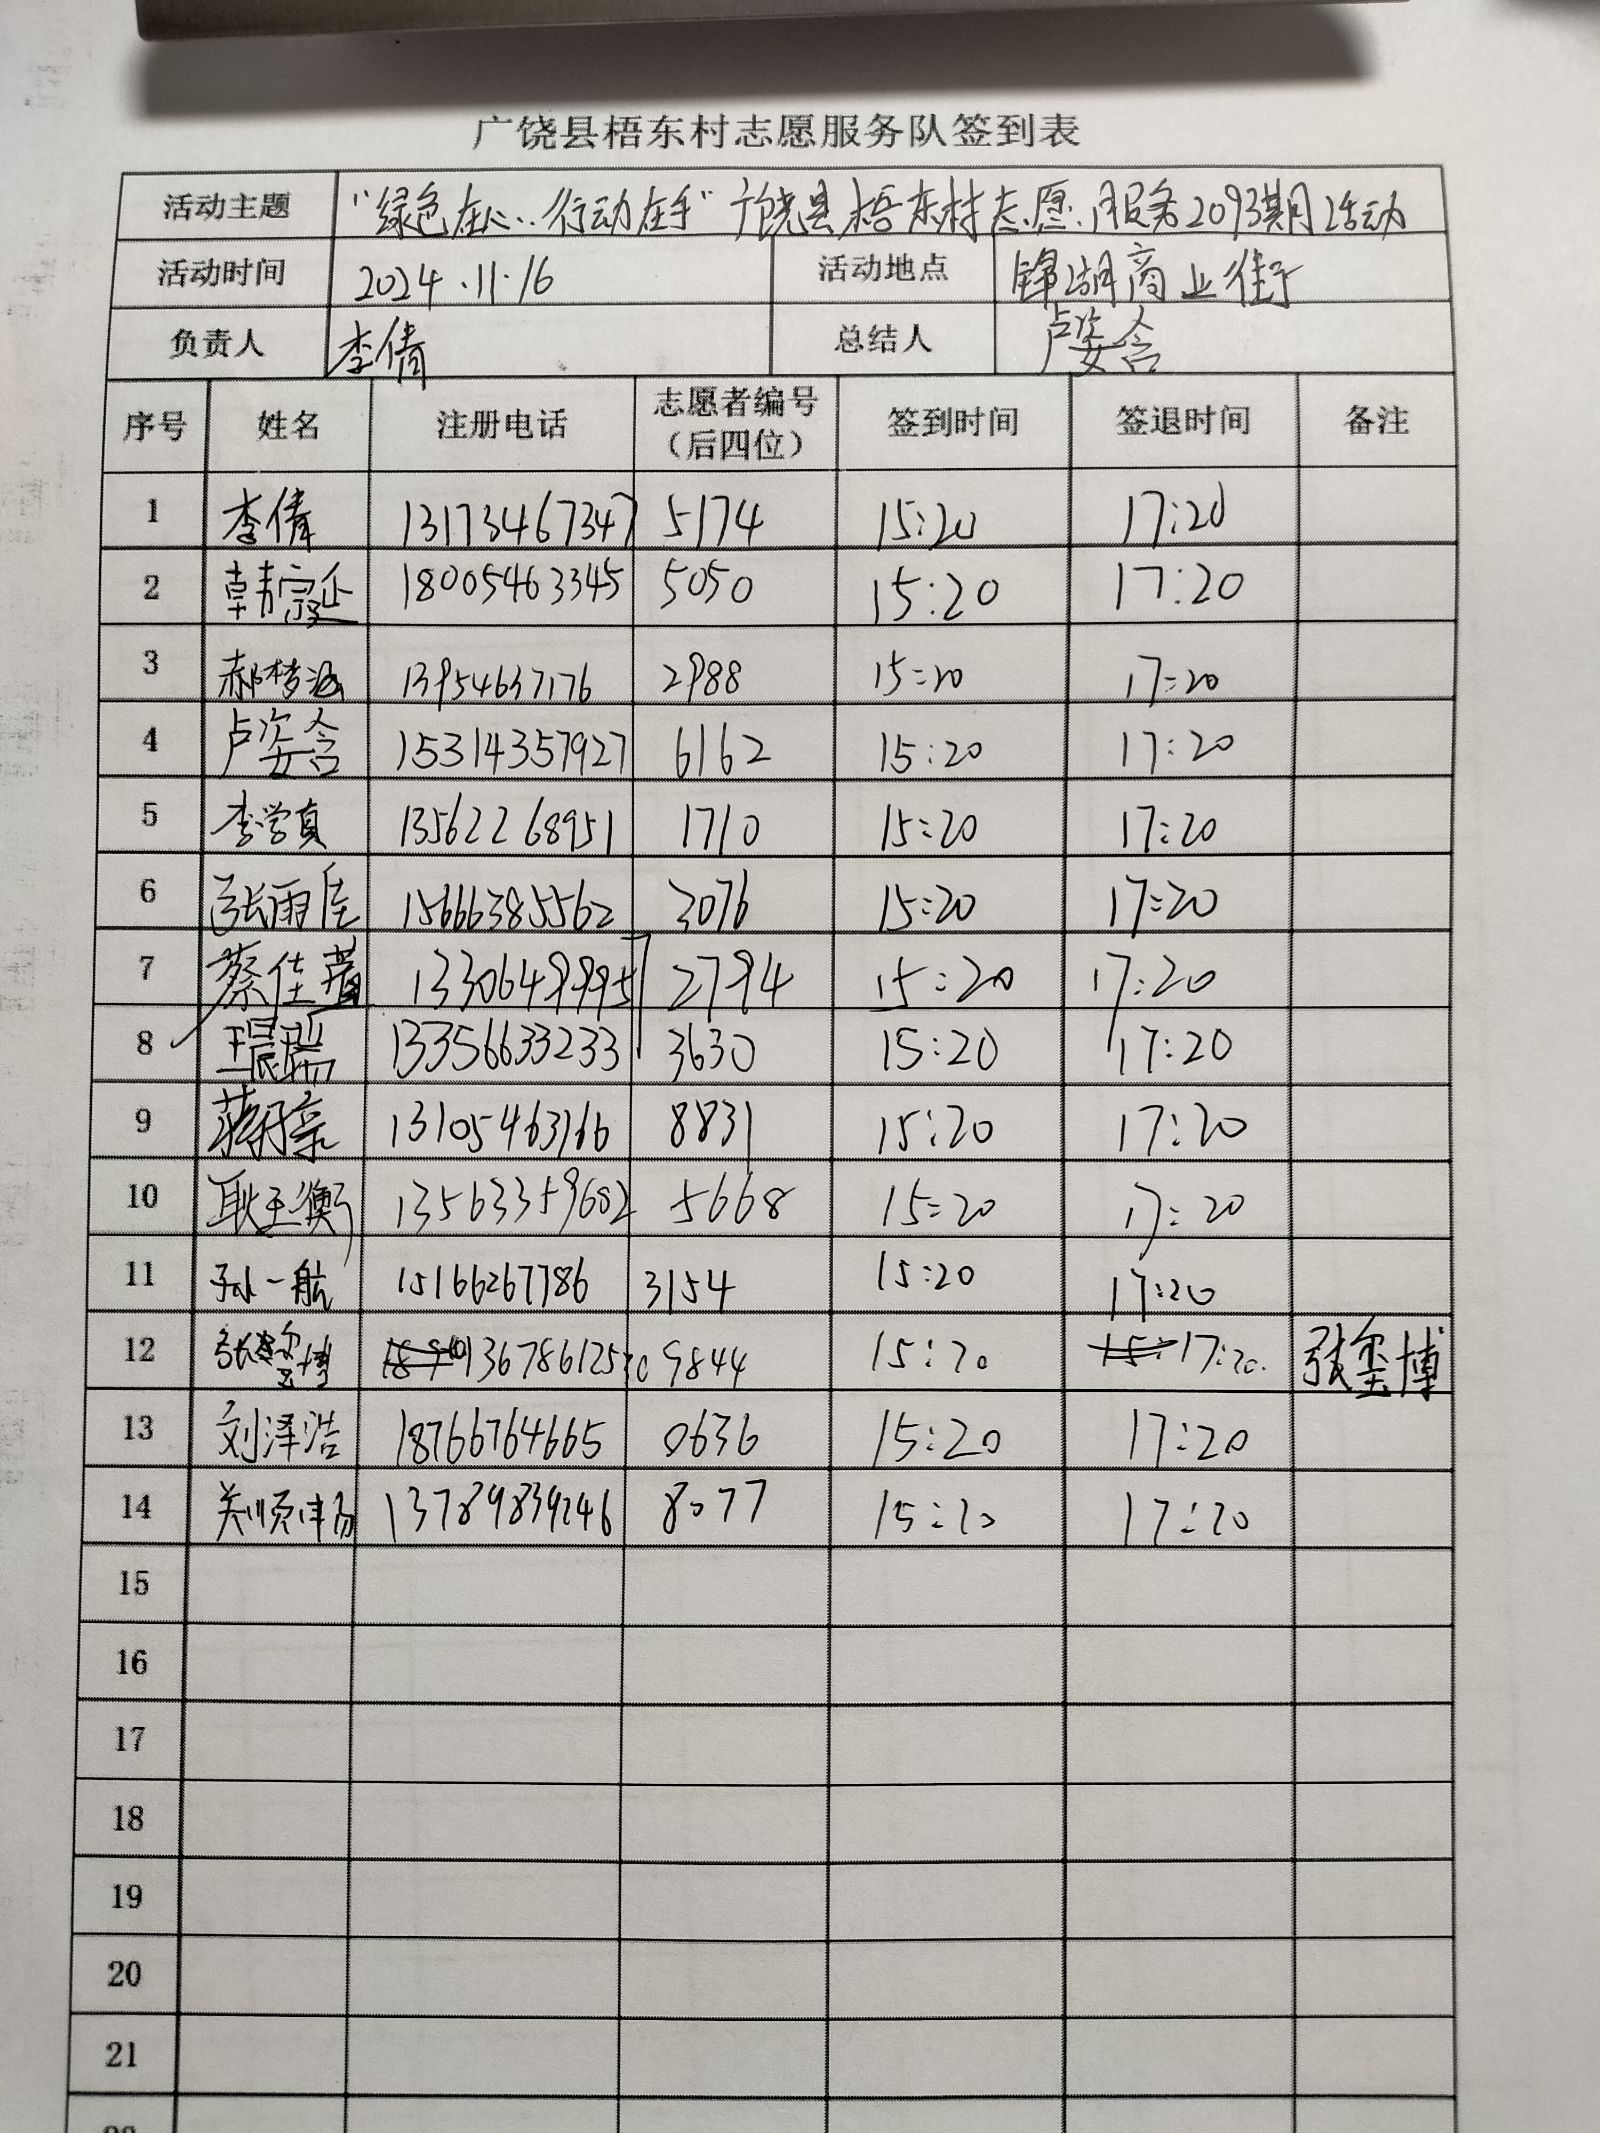 广饶县梧东村志愿服务队签到表
活动主题 "绿色在心..行动在手"广饶县梧东村志愿服务2093期活动
活动时间 2024.11.16 活动地点 锦湖商业街
负责人 李倩 总结人 卢姿含
序号 姓名 注册电话 志愿者编号（后四位） 签到时间 签退时间 备注
1 李倩 13173467347 5174 15:20 17:20
2 韩宗延 18005463345 5050 15:20 17:20
3 郝梦涵 13954637176 2988 15:20 17:20
4 卢姿含 15314357927 6162 15:20 17:20
5 李学真 13562268951 1710 15:20 17:20
6 张雨佳 15666385562 3076 15:20 17:20
7 蔡佳 13306499957 2794 15:20 17:20
8 王晨瑞 13356633233 3630 15:20 17:20
9 13105463166 8831 15:20 17:20
10 耿玉衡 13563359682 5668 15:20 17:20
11 孙一航 15166267786 3154 15:20 17:20
12 张玺博 9844 15:20 17:20. 张玺博
13 刘泽浩 18766764665 0636 15:20 17:20
14 13789839246 8077 15:20 17:20
15
16
17
18
19
20
21